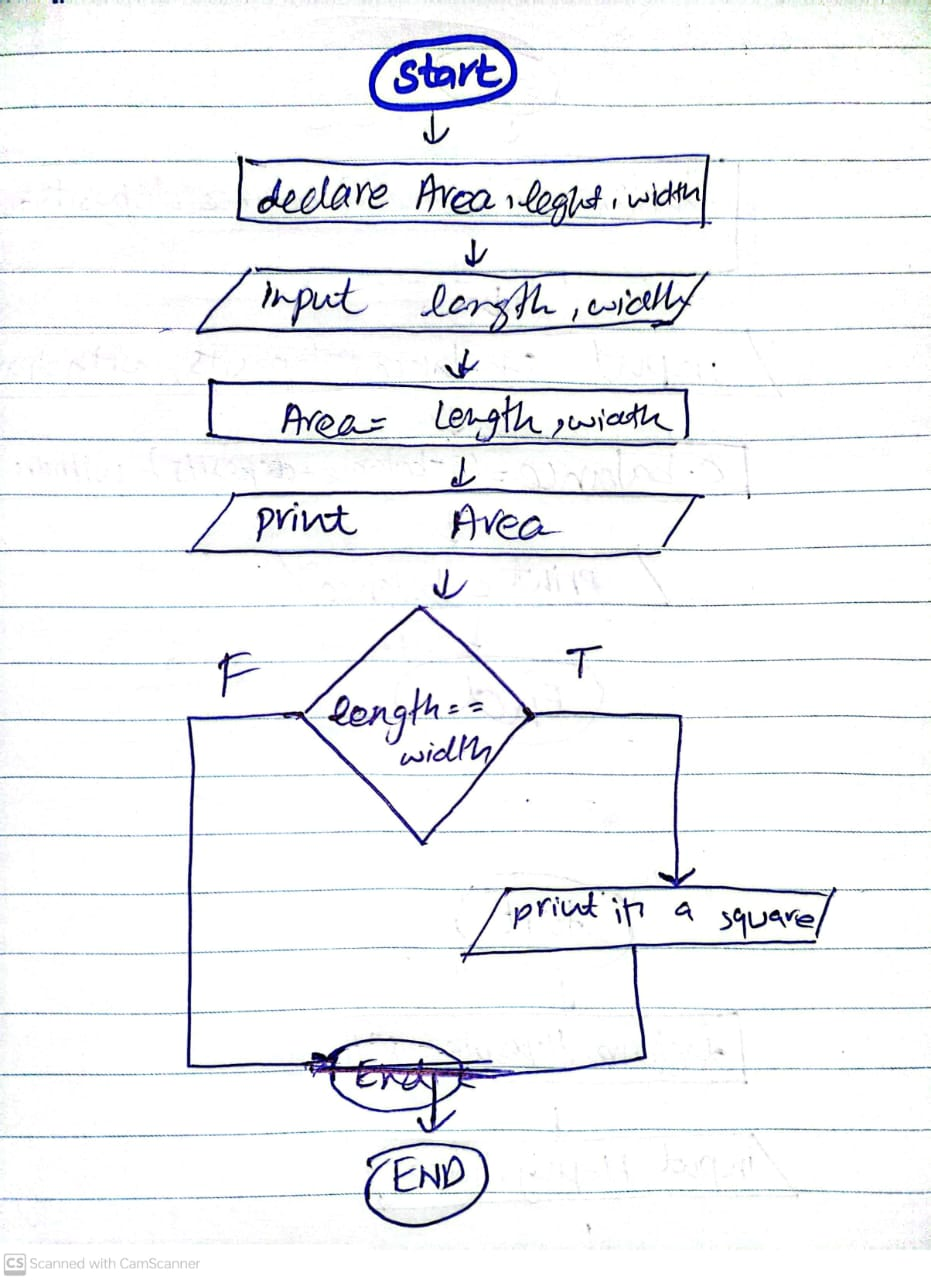 Start
declare Area, leght, width
input length, width
Area= Length, width
print Area
F
T
length==
width
print it a square
End
END
CS Scanned with CamScanner